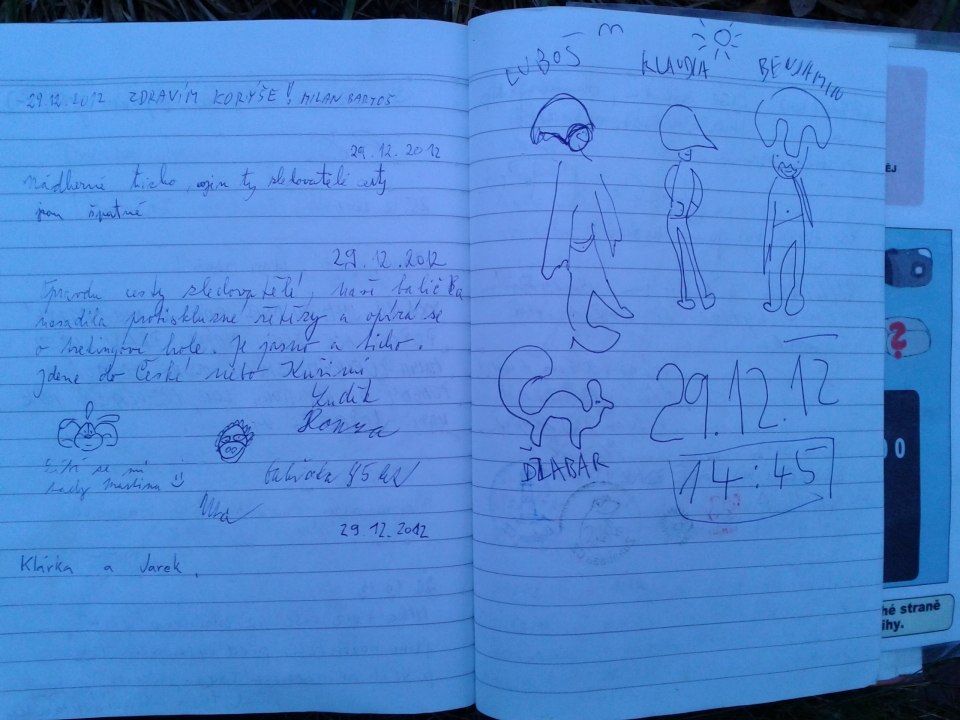 29.12.2012 ZDRAVÍM KORÝŠE! MILAN BARTOŠ
29.12.2012
Nádherné ticho, sledovatelé cesty
jsou špatné
29.12.2012
Opravdu cesty sledovatelé, naší babička
nasadila protiskluzné řetězy a opírá se
o trekingové hole. Je jasno a ticho.
Jdeme do České nebo Kuřimi
Luděk
Honza
Líbí se mi
tady
babička 75 let
29.12.2012
Klárka a Jarek.
LUBOŠ
KLAUDIA
BENJAMIN
DŽABAR
29.12.12
14:45
EJ
?
0
hé straně
ihy.